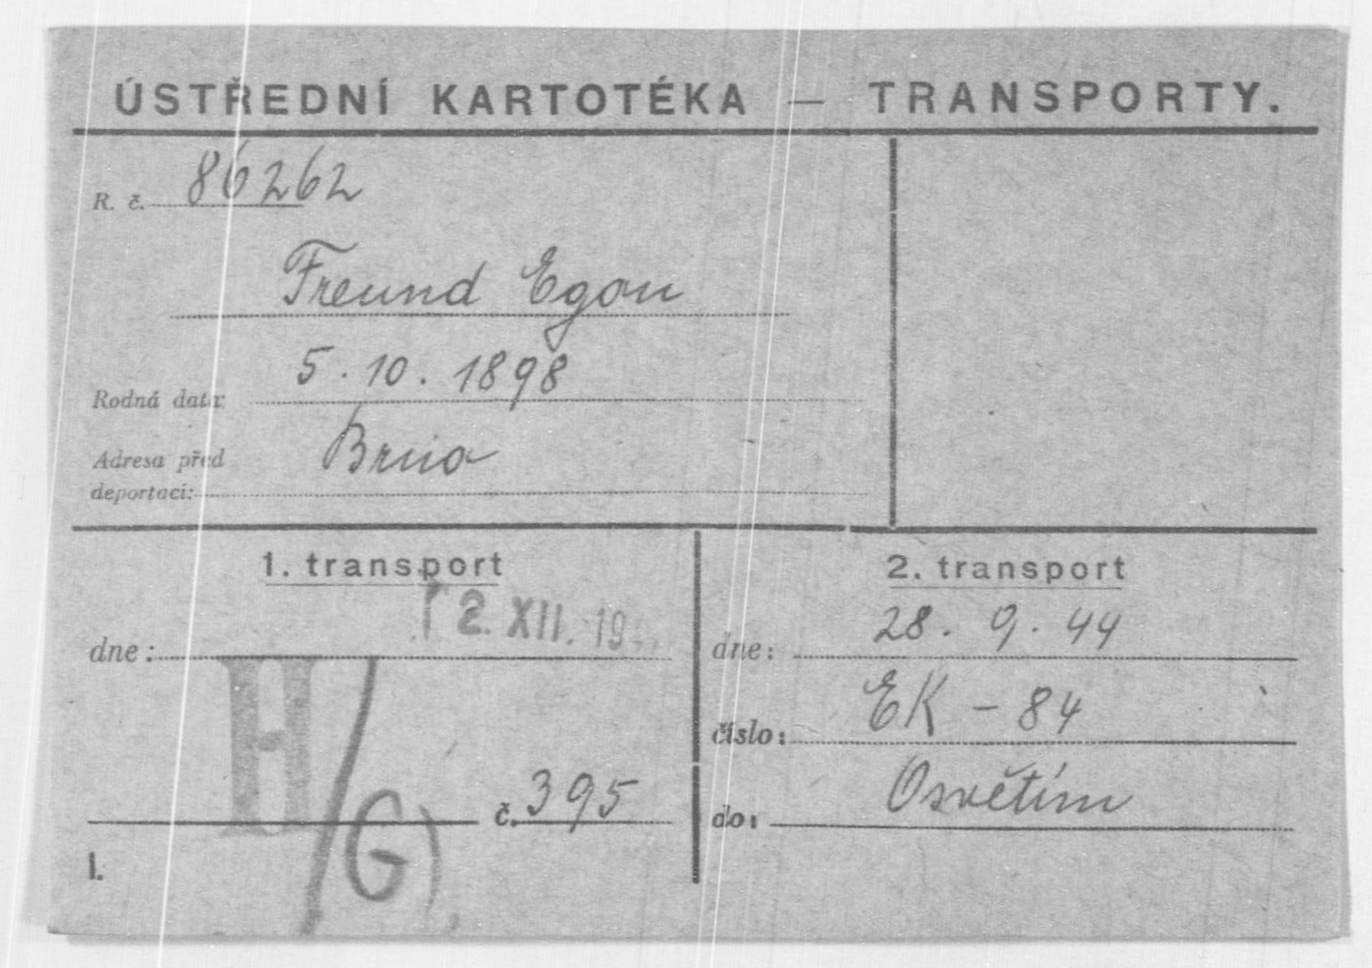 ÚSTŘEDNÍ KARTOTÉKA — TRANSPORTY.
R. č. 86262
Freund Egon
Rodná data: 5. 10. 1898
Adresa před Brno
deportací:
1. transport
dne: 2. XII. 19
H/G)
č. 395
I.
2. transport
dne: 28. 9. 44
číslo: EK - 84
do: Osvětím